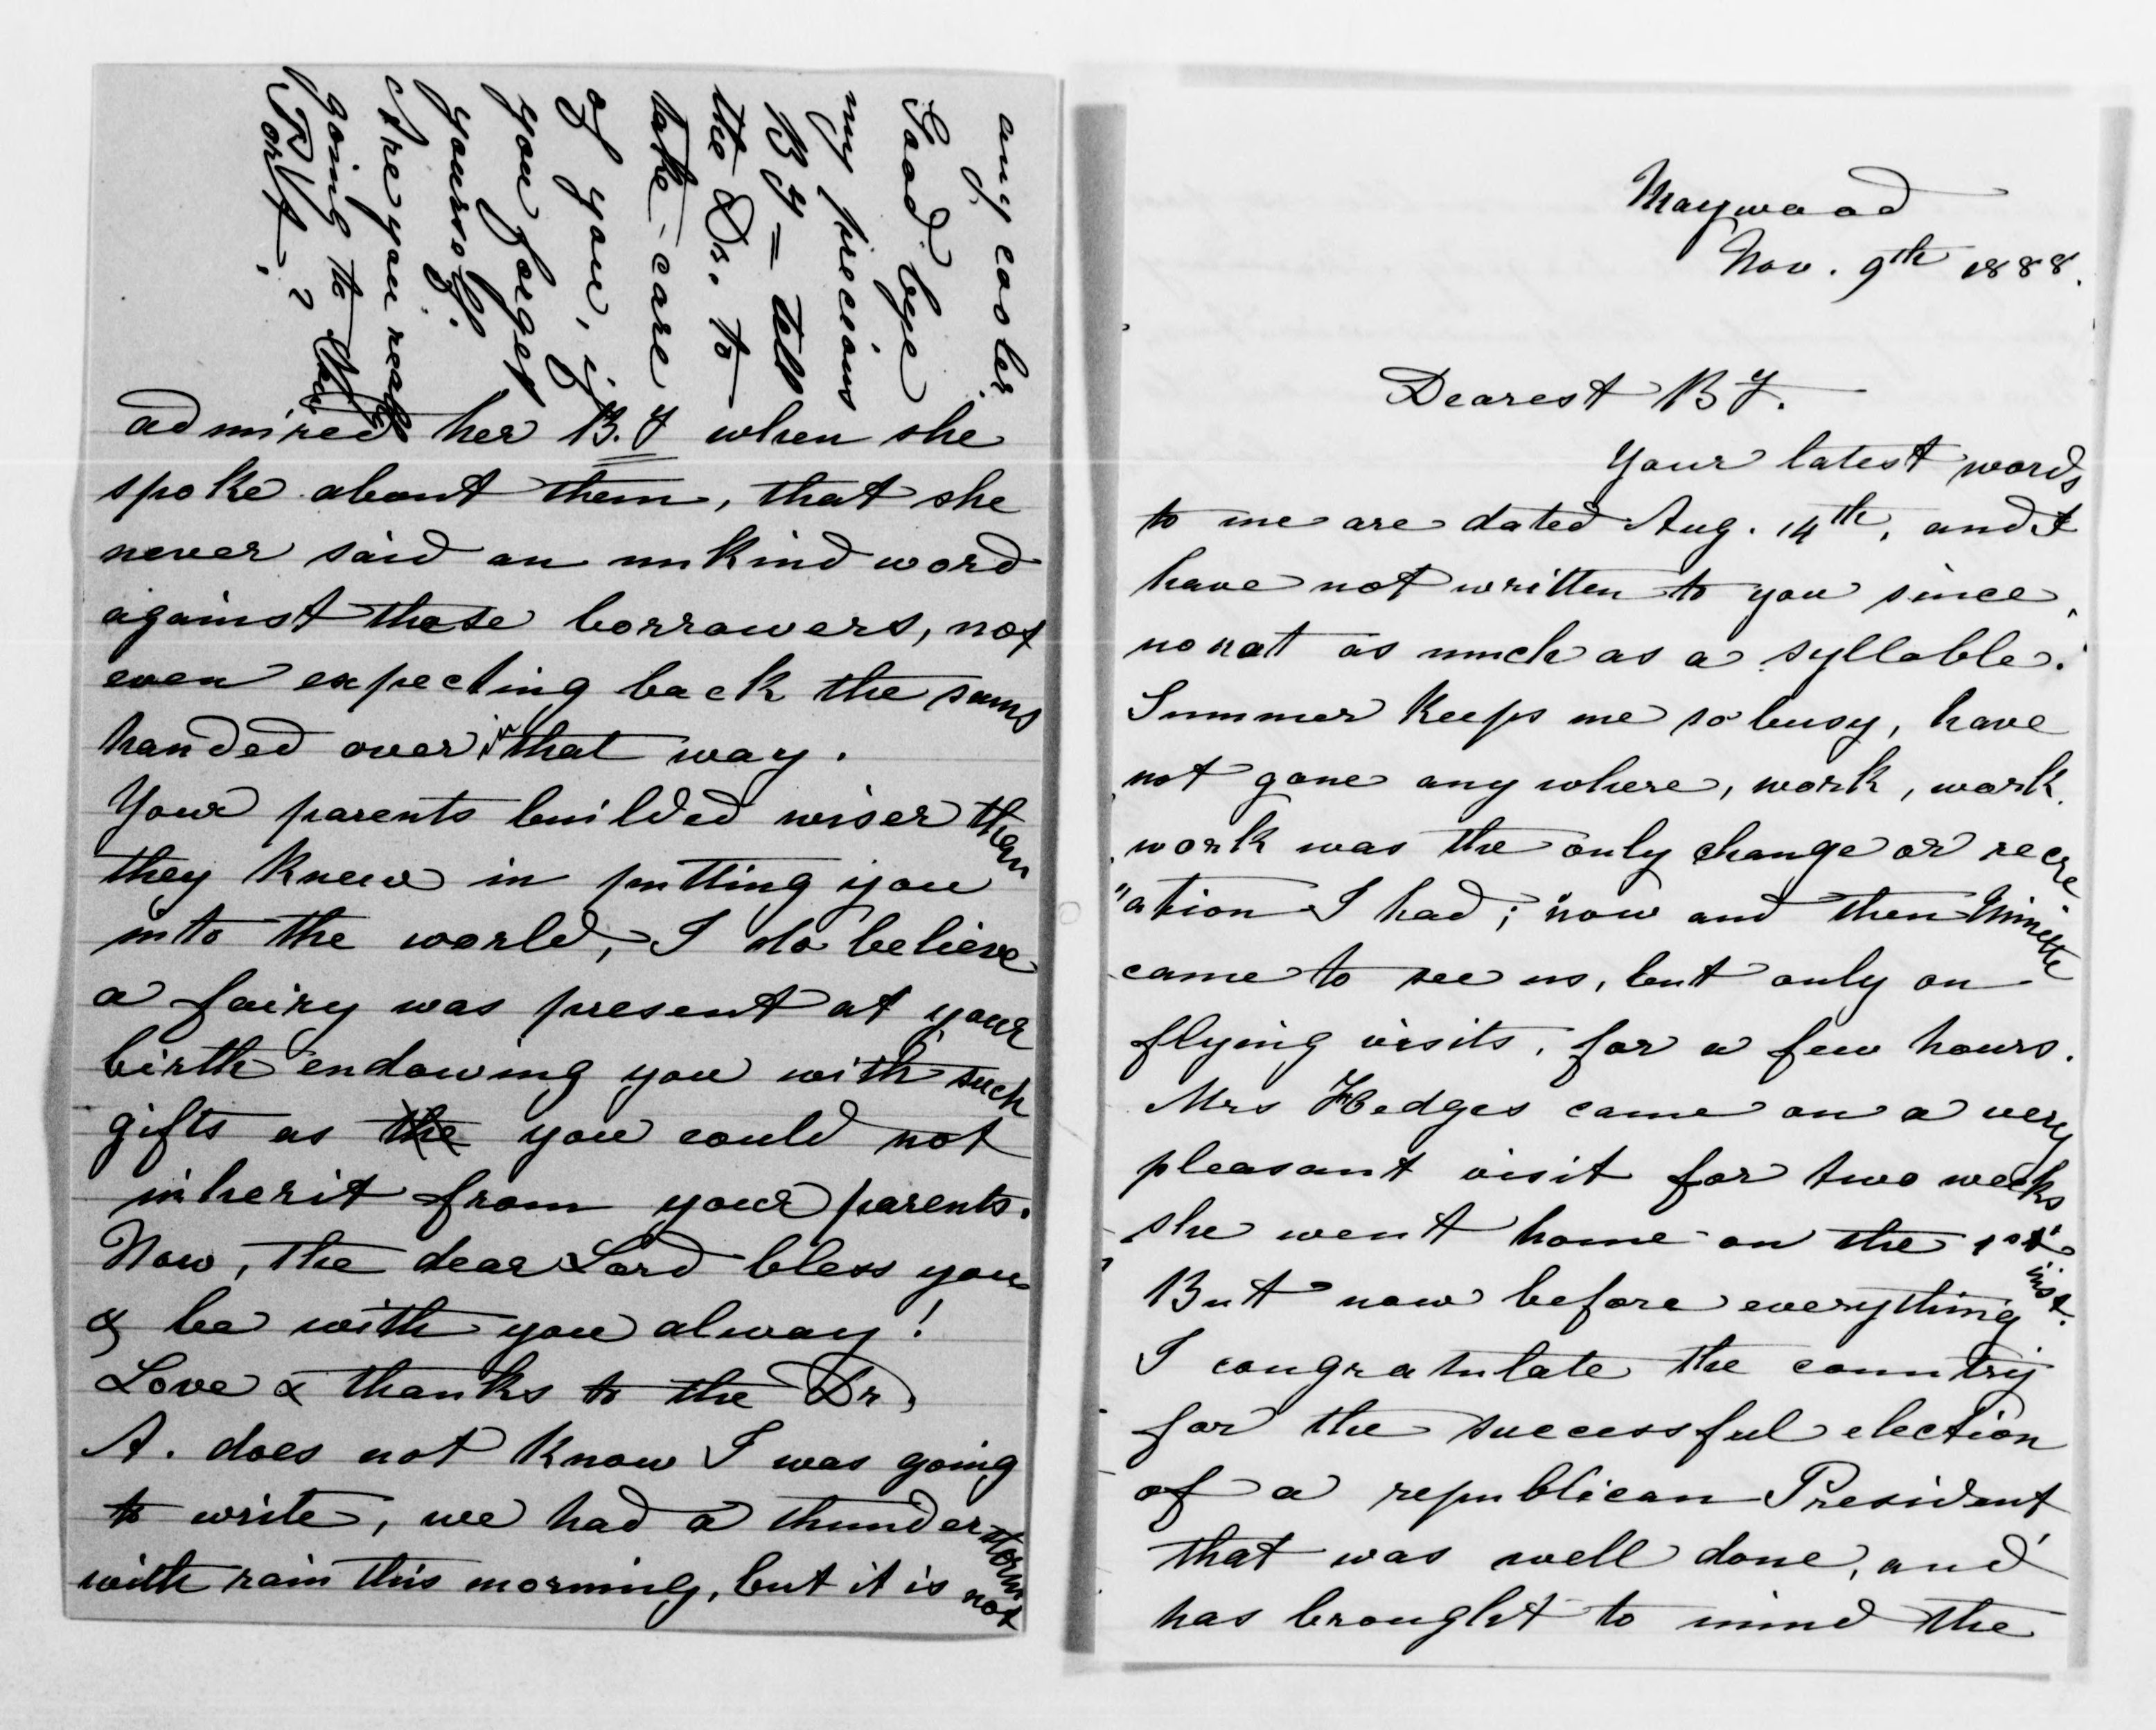 admired her B.Y when she
spoke about them, that she
never said an unkind word
against those borrowers, not
even expecting back the sums
handed over in that way.
Your parents builded wiser than
they knew in putting you
into the world, I do believe
a fairy was present at your
birth endowing you with such
gifts as the you could not
inherit from your parents.
Now, the dear Lord bless you
& be with you alway!
Love & thanks to the Dr,
A. does not know I was going
to write, we had a thunder storm
with rain this morning, but it is not
any cooler.
Good bye
my precious
B Y = tell
the Dr. to
take care
of you, if
you forget
yourself.
Are you really
going to
Maywood
Nov. 9th 1888.
Dearest B Y.
Your latest words
to me are dated Aug. 14th, and I
have not written to you since,
no not as much as a syllable.
Summer keeps me so busy, have
not gone any where, work, work,
work was the only change or recre
"ation I had; now and then Minette
came to see us, but only on
flying visits, for a few hours.
Mrs Hedges came on a very
pleasant visit for two weeks
she went home on the 1st inst.
But now before everything
I congratulate the country
for the successful election
of a republican President
that was well done, and
has brought to mind the